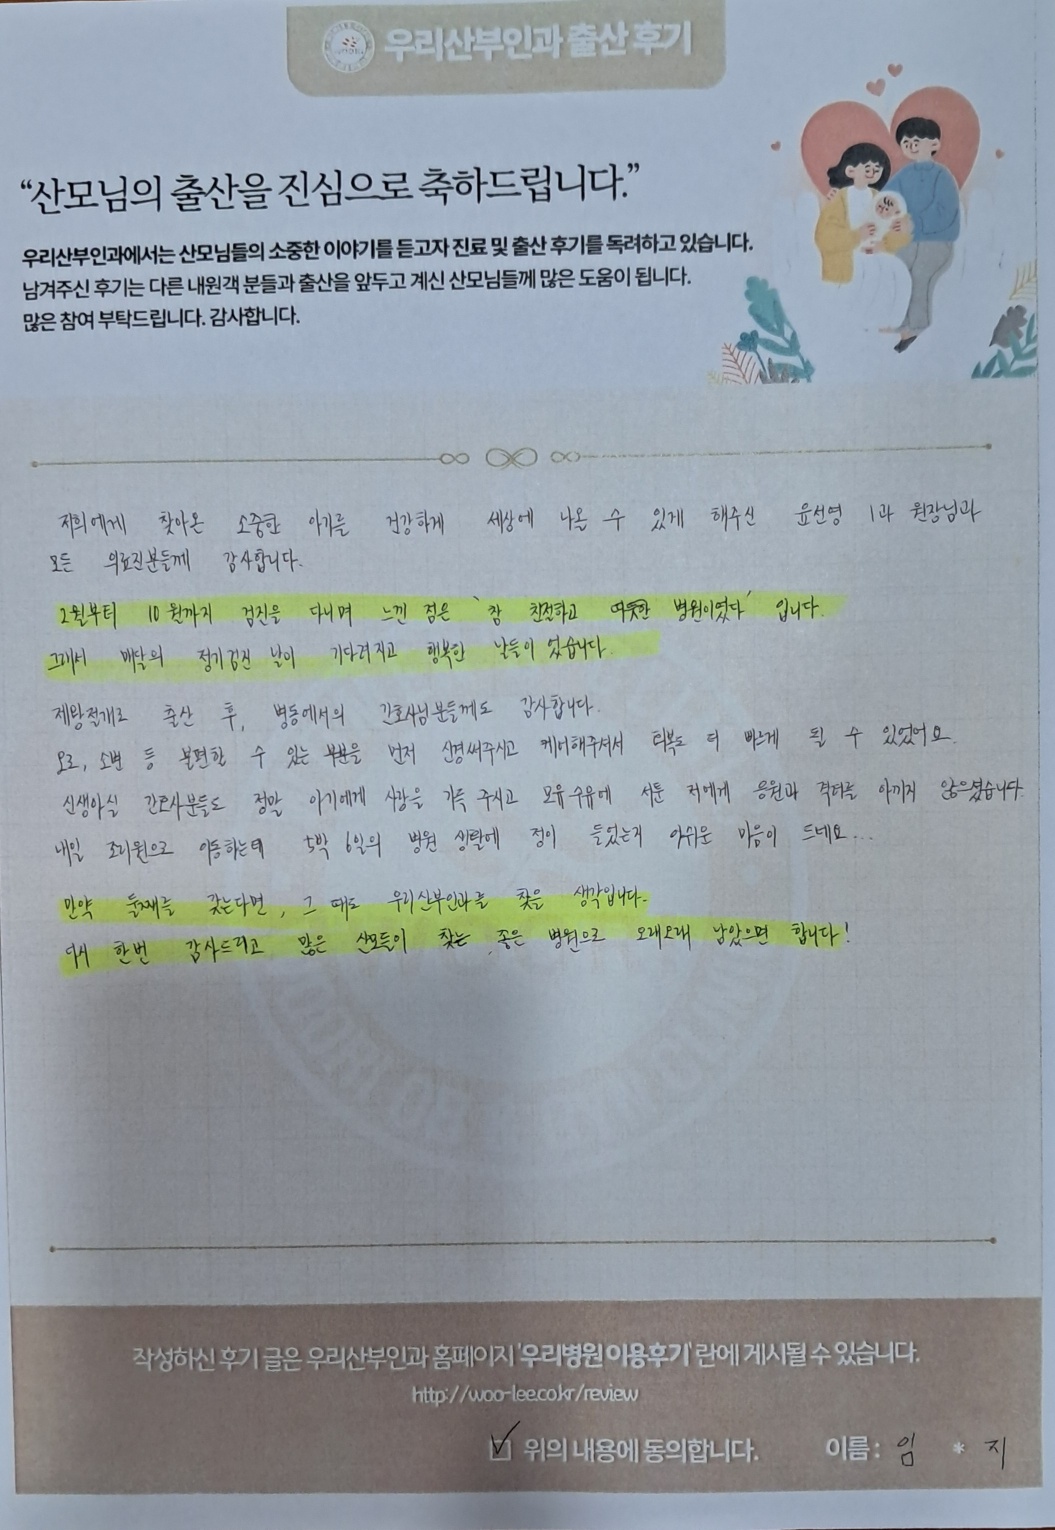 우리산부인과 출산 후기
“산모님의 출산을 진심으로 축하드립니다.”
우리산부인과에서는 산모님들의 소중한 이야기를 듣고자 진료 및 출산 후기를 독려하고 있습니다.
남겨주신 후기는 다른 내원객 분들과 출산을 앞두고 계신 산모님들께 많은 도움이 됩니다.
많은 참여 부탁드립니다. 감사합니다.
저희에게 찾아온 소중한 아기를 건강하게 세상에 나올 수 있게 해주신 윤선영 1과 원장님과
모든 의료진분들께 감사합니다.
2월부터 10월까지 검진을 다니며 느낀 점은 '참 친절하고 따뜻한 병원이었다' 입니다.
그래서 매달의 정기검진 날이 기다려지고 행복한 날들이었습니다.
제왕절개로 출산 후, 병동에서의 간호사님분들께도 감사합니다.
오로, 소변 등 불편할 수 있는 부분을 먼저 신경써주시고 케어해주셔서 회복도 더 빠르게 될 수 있었어요.
신생아실 간호사분들도 정말 아기에게 사랑을 가득 주시고 모유수유에 서툰 저에게 응원과 격려를 아끼지 않으셨습니다.
내일 조리원으로 이동하는데 5박 6일의 병원 생활에 정이 들었는지 아쉬운 마음이 드네요...
만약 둘째를 갖는다면, 그 때도 우리산부인과를 찾을 생각입니다.
다시 한번 감사드리고 많은 산모들이 찾는 좋은 병원으로 오래오래 남았으면 합니다!
작성하신 후기 글은 우리산부인과 홈페이지 '우리병원 이용후기' 란에 게시될 수 있습니다.
http://woo-lee.co.kr/review
위의 내용에 동의합니다. 이름 : 임 * 지